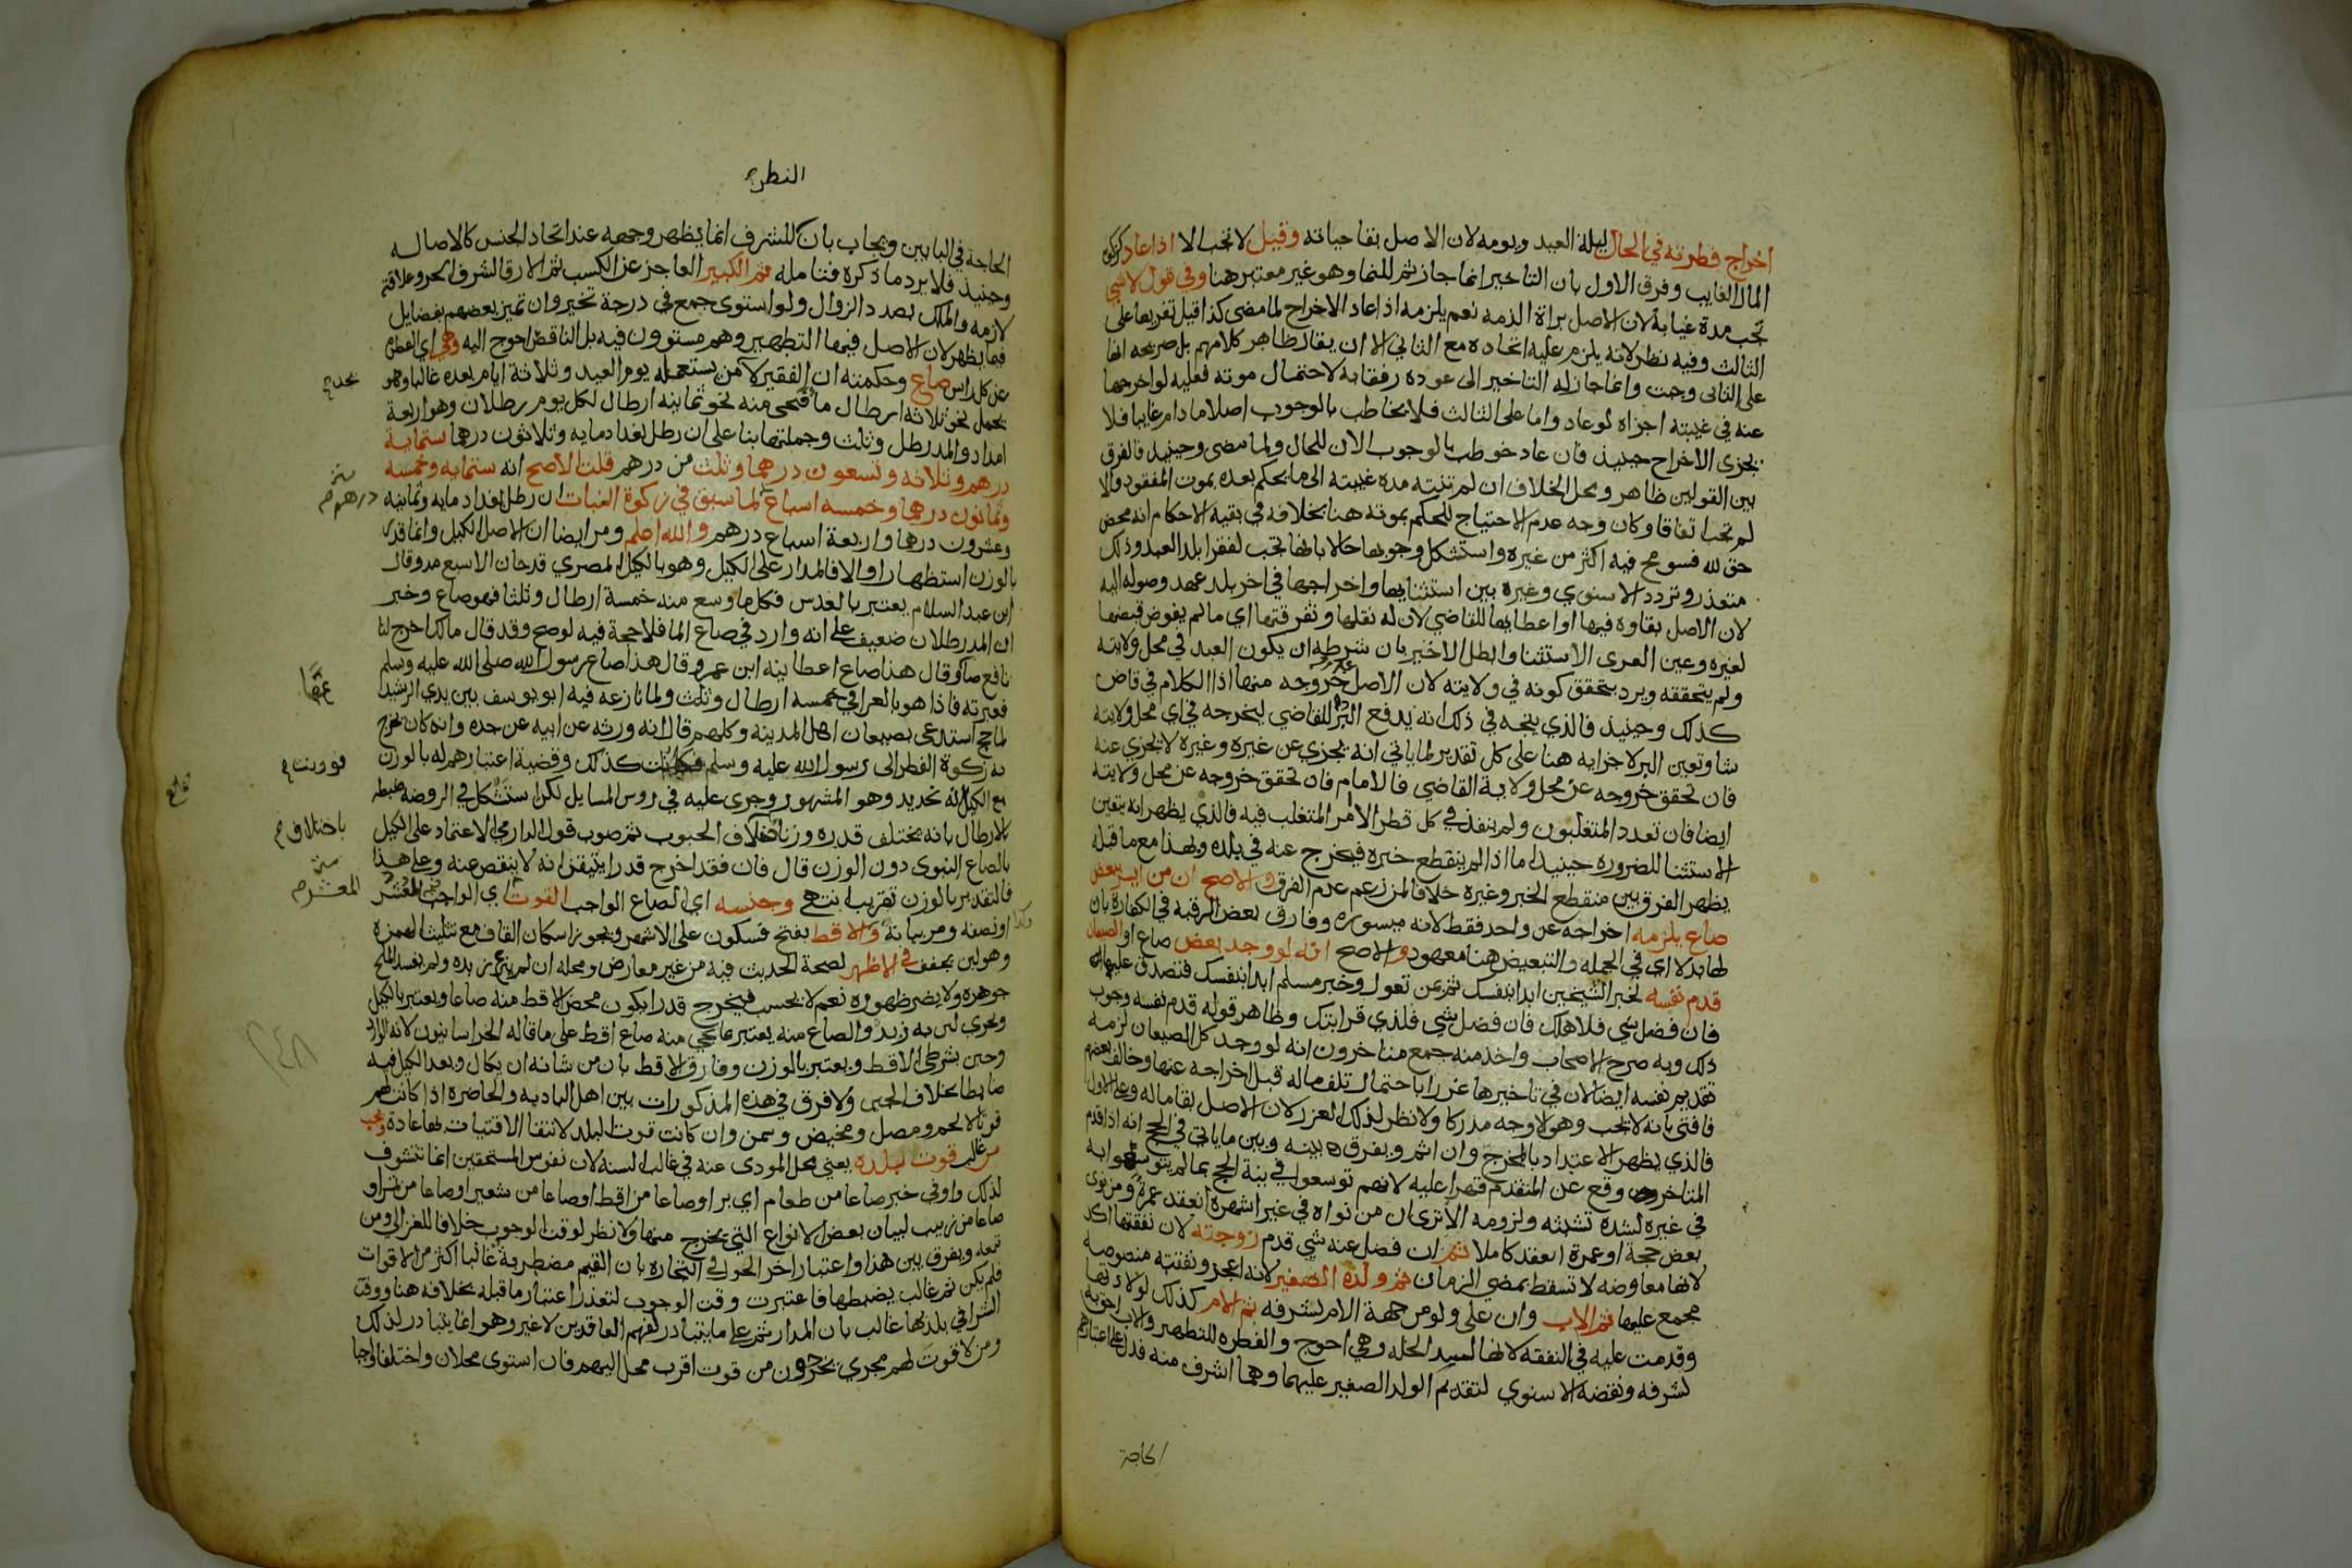 اخراج فطرته في الحال ليلة العيد ويومه لان الاصل بقا حياته وقيل لا تجب الا اذا عاد كزكوة
المال الغايب وفرق الاول بان التاخير انما جاز ثم للنما وهو غير معتبر هنا وفي قول لا شي
تجب مدة غيابه لان الاصل براة الذمه نعم يلزمه اذا عاد الاخراج لما مضى كذا قيل تفريعا على
الثالث وفيه نظر لانه يلزم عليه اتحاده مع الثاني الا ان يقال ظاهر كلامهم بل صريحه انها
على الثانى وجبت وانما جاز له التاخير الى عوده رفقا به لاحتمال موته فعليه لو اخرجها
عنه في غيبته اجزاه لو عاد واما على الثالث فلا يخاطب بالوجوب اصلا ما دام غايبا فلا
يجزى الاخراج حينيذ فان عاد خوطب بالوجوب الان للحال ولما مضى وحينيذ فالفرق
بين القولين ظاهر ومحل الخلاف ان لم تنته مدة غيبته الى ما يحكم بعده بموت المفقود والا
لم تجب اتفاقا وكان وجه عدم الاحتياج للحكم بموته هنا بخلافه في بقية الاحكام انه محض
حق لله فسومح فيه اكثر من غيره واستشكل وجوبها حالا بانها تجب لفقرا بلد العبد وذلك
متعذر وتردد الاسنوي وغيره بين استثنايها واخراجها في اخر بلد عهد وصوله اليه
لان الاصل بقاوه فيها او اعطايها للقاضي لان له نقلها وتفرقتها اي ما لم يفوض قبضها
لغيره وعين الغزى الاستثنا وابطل الاخير بان شرطه ان يكون العبد في محل ولايته
ولم يتحققه ويرد بتحقق كونه في ولايته لان الاصل عدم خروجه منها اذا الكلام في قاض
كذلك وحينيذ فالذي يتجه في ذلك انه يدفع البر للقاضي ليخرجه في اي محل ولايته
شا وتعين البر لاجزايه هنا على كل تقدير لما ياتي انه يجزي عن غيره وغيره لا يجزي عنه
فان تحقق خروجه عن محل ولاية القاضي فالامام فان تحقق خروجه عن محل ولايته
ايضا فان تعدد المتغلبون ولم ينفذ في كل قطر الا امر المتغلب فيه فالذي يظهر انه يتعين
الاستثنا للضرورة حينيذ اما اذا لم ينقطع خبره فيخرج عنه في بلده وبهذا مع ما قبله
يظهر الفرق بين منقطع الخبر وغيره خلافا لمن زعم عدم الفرق والاصح ان من ايسر ببعض
صاع يلزمه اخراجه عن واحد فقط لانه ميسوره وفارق بعض الرقبه في الكفارة بان
لها بدلا اي في الجمله والتبعيض هنا معهود والاصح انه لو وجد بعض صاع او الصيعان
قدم نفسه لخبر الشيخين ابدا بنفسك ثم بمن تعول وخبر مسلم ابدا بنفسك فتصدق عليها
فان فضل شي فلاهلك فان فضل شي فلذي قرابتك وظاهر قوله قدم نفسه وجوب
ذلك وبه صرح الاصحاب واخذ منه جمع متاخرون انه لو وجد كل الصيعان لزمه
تقديم نفسه ايضا لان في تاخيرها غررا باحتمال تلف ماله قبل اخراجه عنها وخالف بعضهم
فافتى بانه لا يجب وهو الاوجه مدركا ولا نظر لذلك الغرر لان الاصل بقا ماله وعلى الاول
فالذي يظهر الاعتداد بالمخرج وان اثم ويفرق بينه وبين ما ياتي في الحج انه اذا قدم
المتاخر وقع عن المتقدم قهرا عليه لانهم توسعوا في نية الحج بما لم يتوسعوا به
في غيره لشدة تشبثه ولزومه الا ترى ان من نواه في غير اشهره انعقد عمرة ومن نوى
بعض حجة او عمرة انعقد كاملا ثم ان فضل عنه شي قدم زوجته لان نفقتها اكد
لانها معاوضه لا تسقط بمضي الزمان ثم ولده الصغير لانه اعجز ونفقته منصوصه
مجمع عليها ثم الاب وان على ولو من جهة الام لشرفه ثم الام كذلك لولادتها
وقدمت عليه في النفقه لانها لسد الخله وهي احوج والفطره للتطهير والاب احق به
لشرفه ونقضه الاسنوي لتقديم الولد الصغير عليهما وهما اشرف منه فدل على اعتبارهم
الحاجة
الفطرة
الحاجة في البابين ويجاب بان الشرف انما يظهر وجهه عند اتحاد الجنس كالاصاله
وحينيذ فلا يرد ما ذكره فتامله ثم الكبير العاجز عن الكسب ثم الارقا لشرف الحر وعلاقته
لازمه والملك بصدد الزوال ولو استوى جمع في درجة تخير وان تميز بعضهم بفضايل
فيما يظهر لان الاصل فيها التطهير وهم مستوون فيه بل الناقص احوج اليه وهي اي الفطره
عن كل راس صاع وحكمته ان الفقير لا من يستعمله يوم العيد وثلاثة ايام بعده غالبا وهو
يحمل نحو ثلاثة ارطال ما فيحى منه نحو ثمانيه ارطال لكل يوم رطلان وهو اربعة
امداد والمد رطل وثلث وجملتها بنا على ان رطل بغداد مايه وثلاثون درهما ستماية
درهم وثلاثه وتسعون درهما وثلث من درهم قلت الاصح انه ستمايه وخمسه
وثمانون درهما وخمسه اسباع لما سبق في زكوة النبات ان رطل بغداد مايه وثمانيه
وعشرون درهما واربعة اسباع درهم والله اعلم ومر ايضا ان الاصل الكيل وانما قدر
بالوزن استظهارا والا فالمدار على الكيل وهو بالكيل المصري قدحان الا سبع مد وقال
ابن عبد السلام يعتبر بالعدس فكل ما وسع منه خمسة ارطال وثلثا فهو صاع وخبر
ان المد رطلان ضعيف على انه وارد في صاع الما فلا حجة فيه لو صح وقد قال مالك اخرج لنا
نافع صاعا وقال هذا صاع اعطانيه ابن عمر وقال هذا صاع رسول الله صلى الله عليه وسلم
فعبرته فاذا هو بالعراقي خمسه ارطال وثلث ولما نازعه فيه ابو يوسف بين يدي الرشيد
لما حج استدعى بصيعان اهل المدينه وكلهم قال انه ورثه عن ابيه عن جده وانه كان يخرج
به زكوة الفطر الى رسول الله عليه وسلم كذلك وقضية اعتبارهم له بالوزن
مع الكيل انه تحديد وهو المشهور وجرى عليه في روس المسايل لكن استشكل في الروضه ضبطه
بالارطال بانه يختلف قدره وزنا الحبوب ثم صوب قول الدارمي الاعتماد على الكيل
بالصاع النبوى دون الوزن قال فان فقد اخرج قدرا يتيقن انه لا ينقص عنه وعلى هذا
فالتقدير بالوزن تقريب انتهى وجنسه اي الصاع الواجب القوت اي الواجب المعشر
او نصفه ومر بيانه والاقط بفتح فسكون على الاشهر ويجوز اسكان القاف مع تثليث الهمزه
وهو لبن يجفف في الاظهر لصحة الحديث فيه من غير معارض ومحله ان لم ينزع زبده ولم يفسد الملح
جوهره ولا يضر ظهوره نعم لا يحسب فيخرج قدرا يكون محض الاقط منه صاعا ويعتبر بالكيل
ويجزى لبن به زبد والصاع منه يعتبر بما يجي منه صاع اقط على ما قاله الخراسانيون لانه الوارد
وجبن بشرطى الاقط ويعتبر بالوزن وفارق الاقط بان من شانه ان يكال ويعد الكيل فيه
ضابطا بخلاف الجبن ولا فرق في هذه المذكورات بين اهل الباديه والحاضره اذا كانت لهم
قوتا لا لحم ومصل ومخيض وسمن وان كانت قوت البلد لانتفا الاقتيات بها عادة وتجب
من غالب قوت بلده يعني محل المودى عنه في غالب السنه لان نفوس المستحقين انما تتشوف
لذلك واو في خبر صاعا من طعام اي بر او صاعا من اقط او صاعا من شعير او صاعا من تمر او
صاعا من زبيب لبيان بعض الانواع التي يخرج منها ولا نظر لوقت الوجوب خلافا للغزالي ومن
تبعه ويفرق بين هذا واعتبار اخر الحول في التجاره بان القيم مضطربة غالبا اكثر من الاقوات
فلم يكن ثم غالب يضبطها فاعتبرت وقت الوجوب لتعذر اعتبار ما قبله بخلافه هنا ووقت
الشرا في بلد بها غالب بان المدار ثم على ما يتبادر لفهم العاقدين لا غير وهو انما يتبادر لذلك
ومن لا قوت لهم مجزي يخرجون من قوت اقرب محل اليهم فان استوى محلان واختلفا واجبا
درهم
عمقا
فورنت
باختلاف
المعشر
٢٤٨